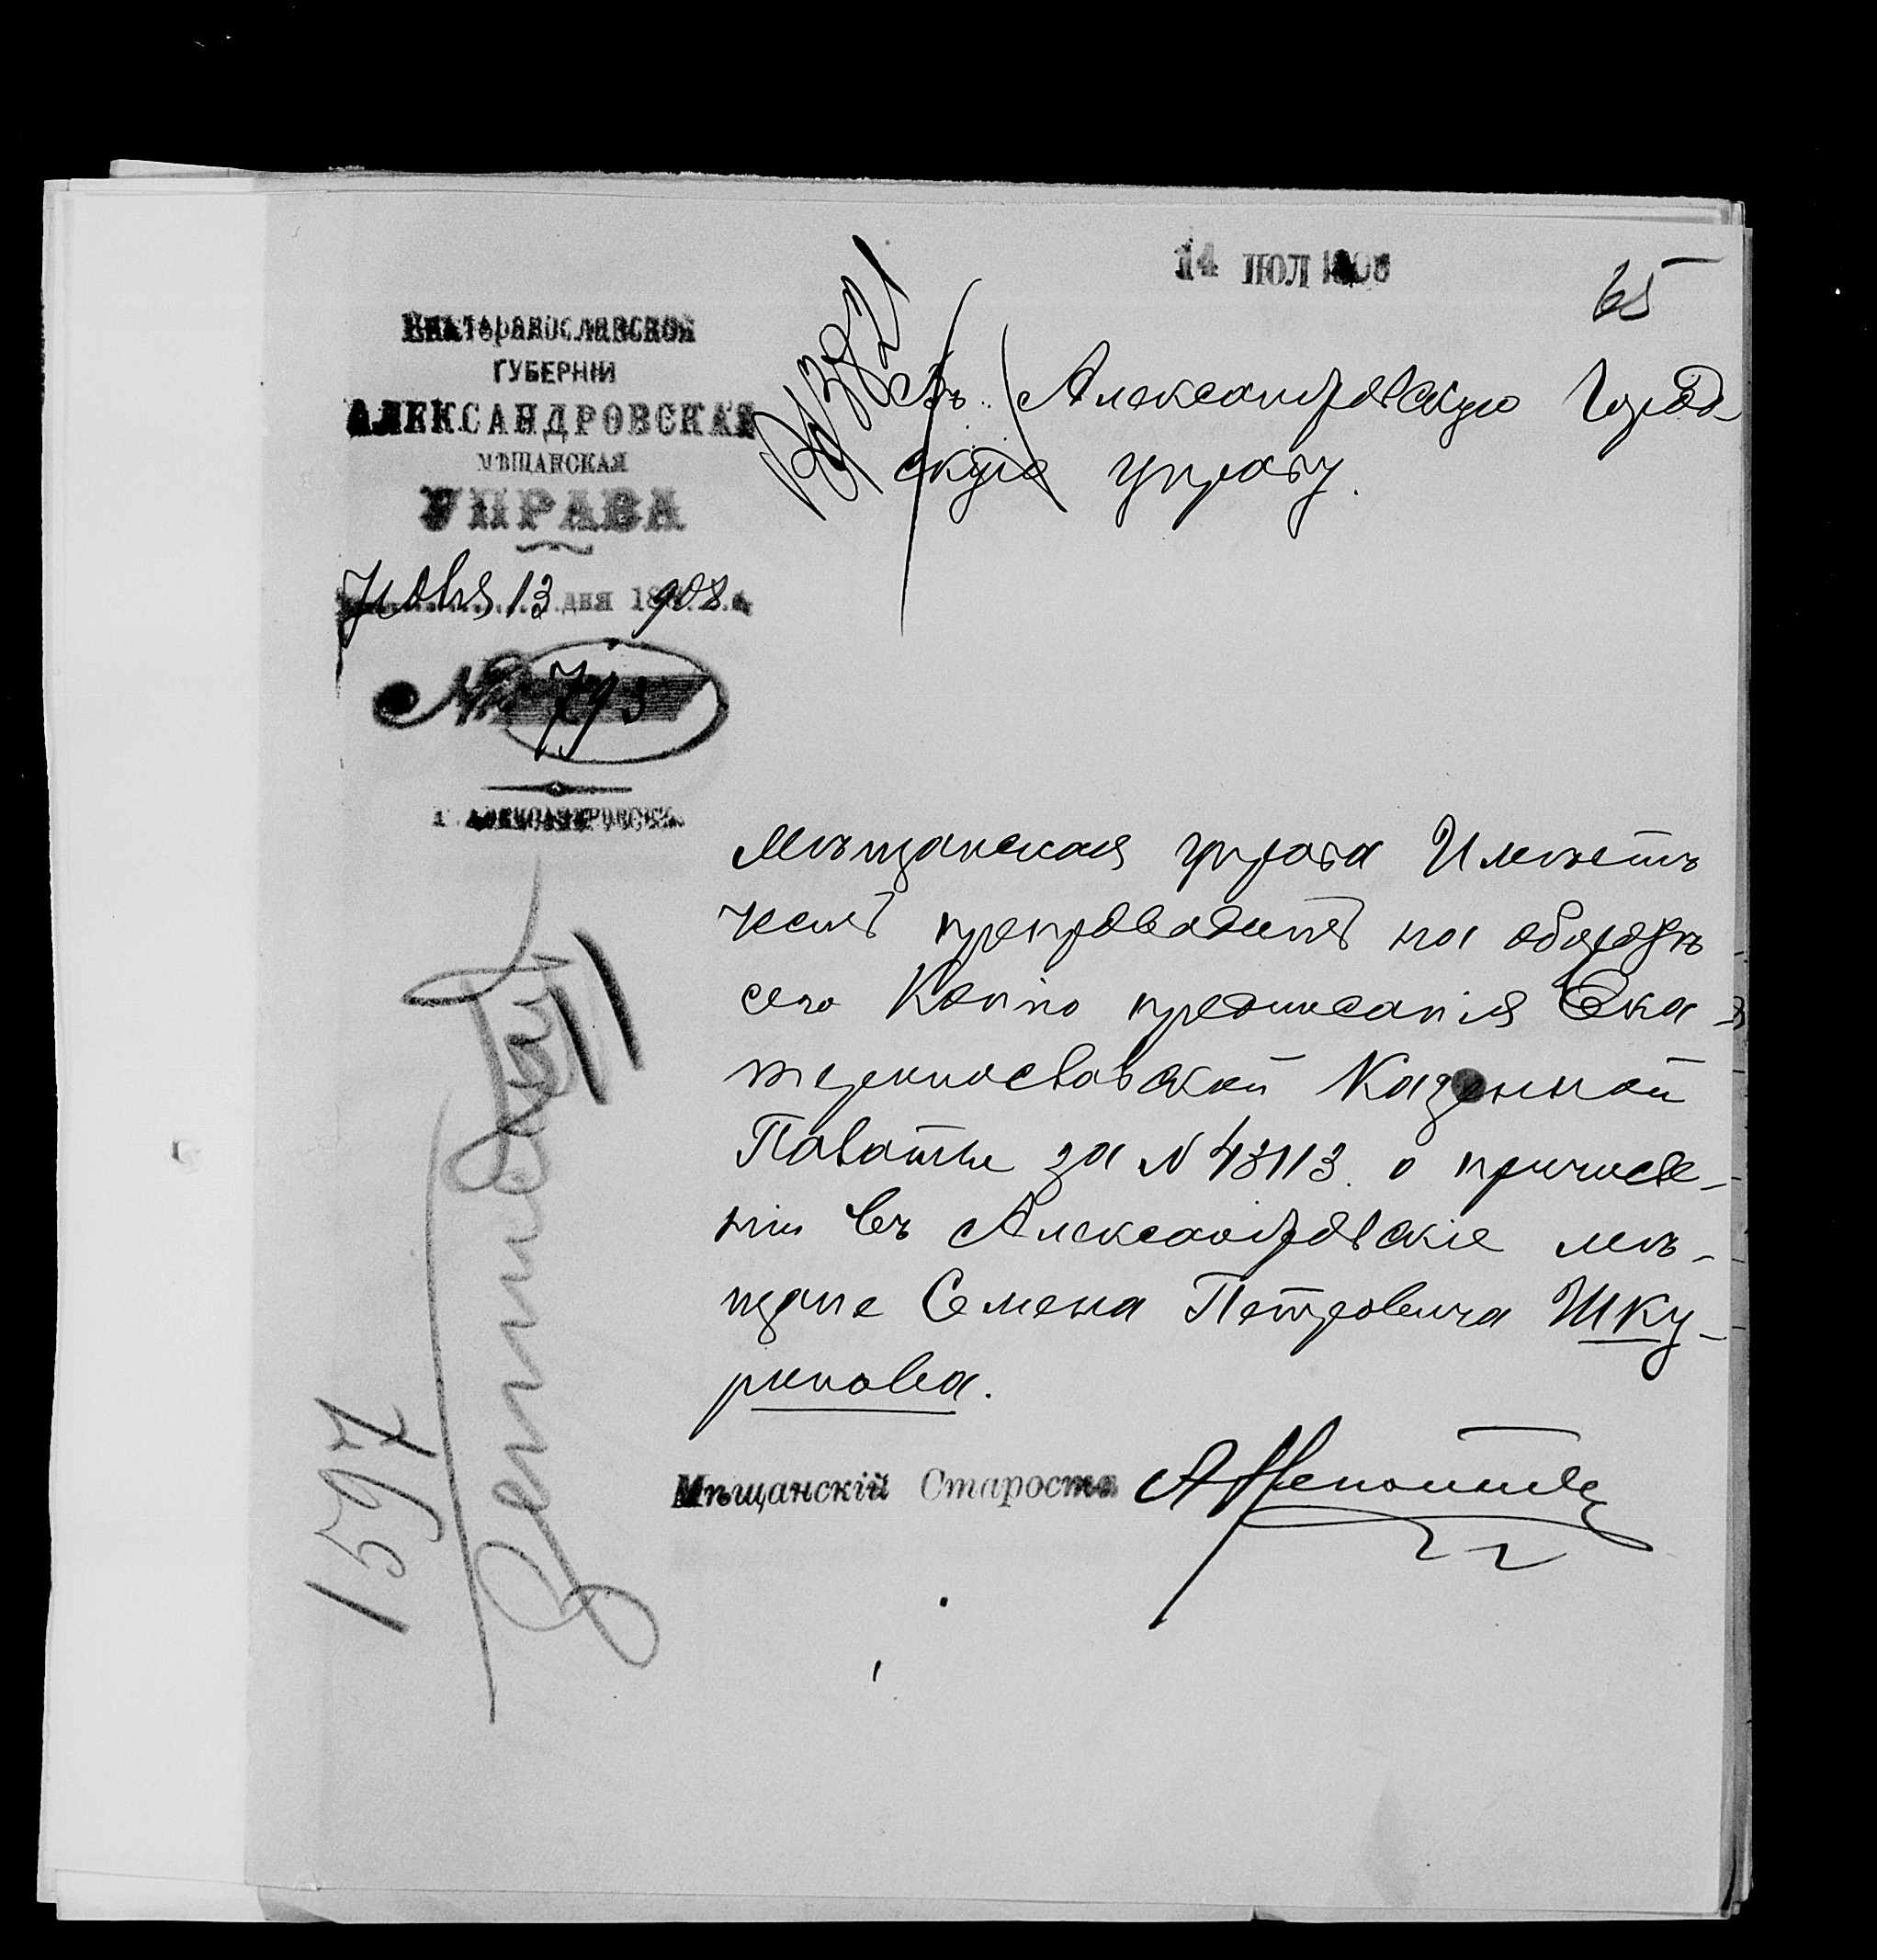 14 ІЮЛ 1908
65
Екатеринославской
ГУБЕРНІИ
АЛЕКСАНДРОВСКАЯ
МѢЩАНСКАЯ
УПРАВА
Іюля 13 дня 1908 г.
№ 793
г. АЛЕКСАНДРОВСКЪ
Въ Александровскую Город
скую управу.
Мѣщанская управа Имѣетъ
честь препроводить на оборотѣ
сего Копію предписанія Ека-
теринославской Казенной
Палаты за № 43113. о причисле-
ніи въ Александровскіе мѣ-
щане Семена Петровича Шку-
ринова.
Мѣщанскій Староста
1597